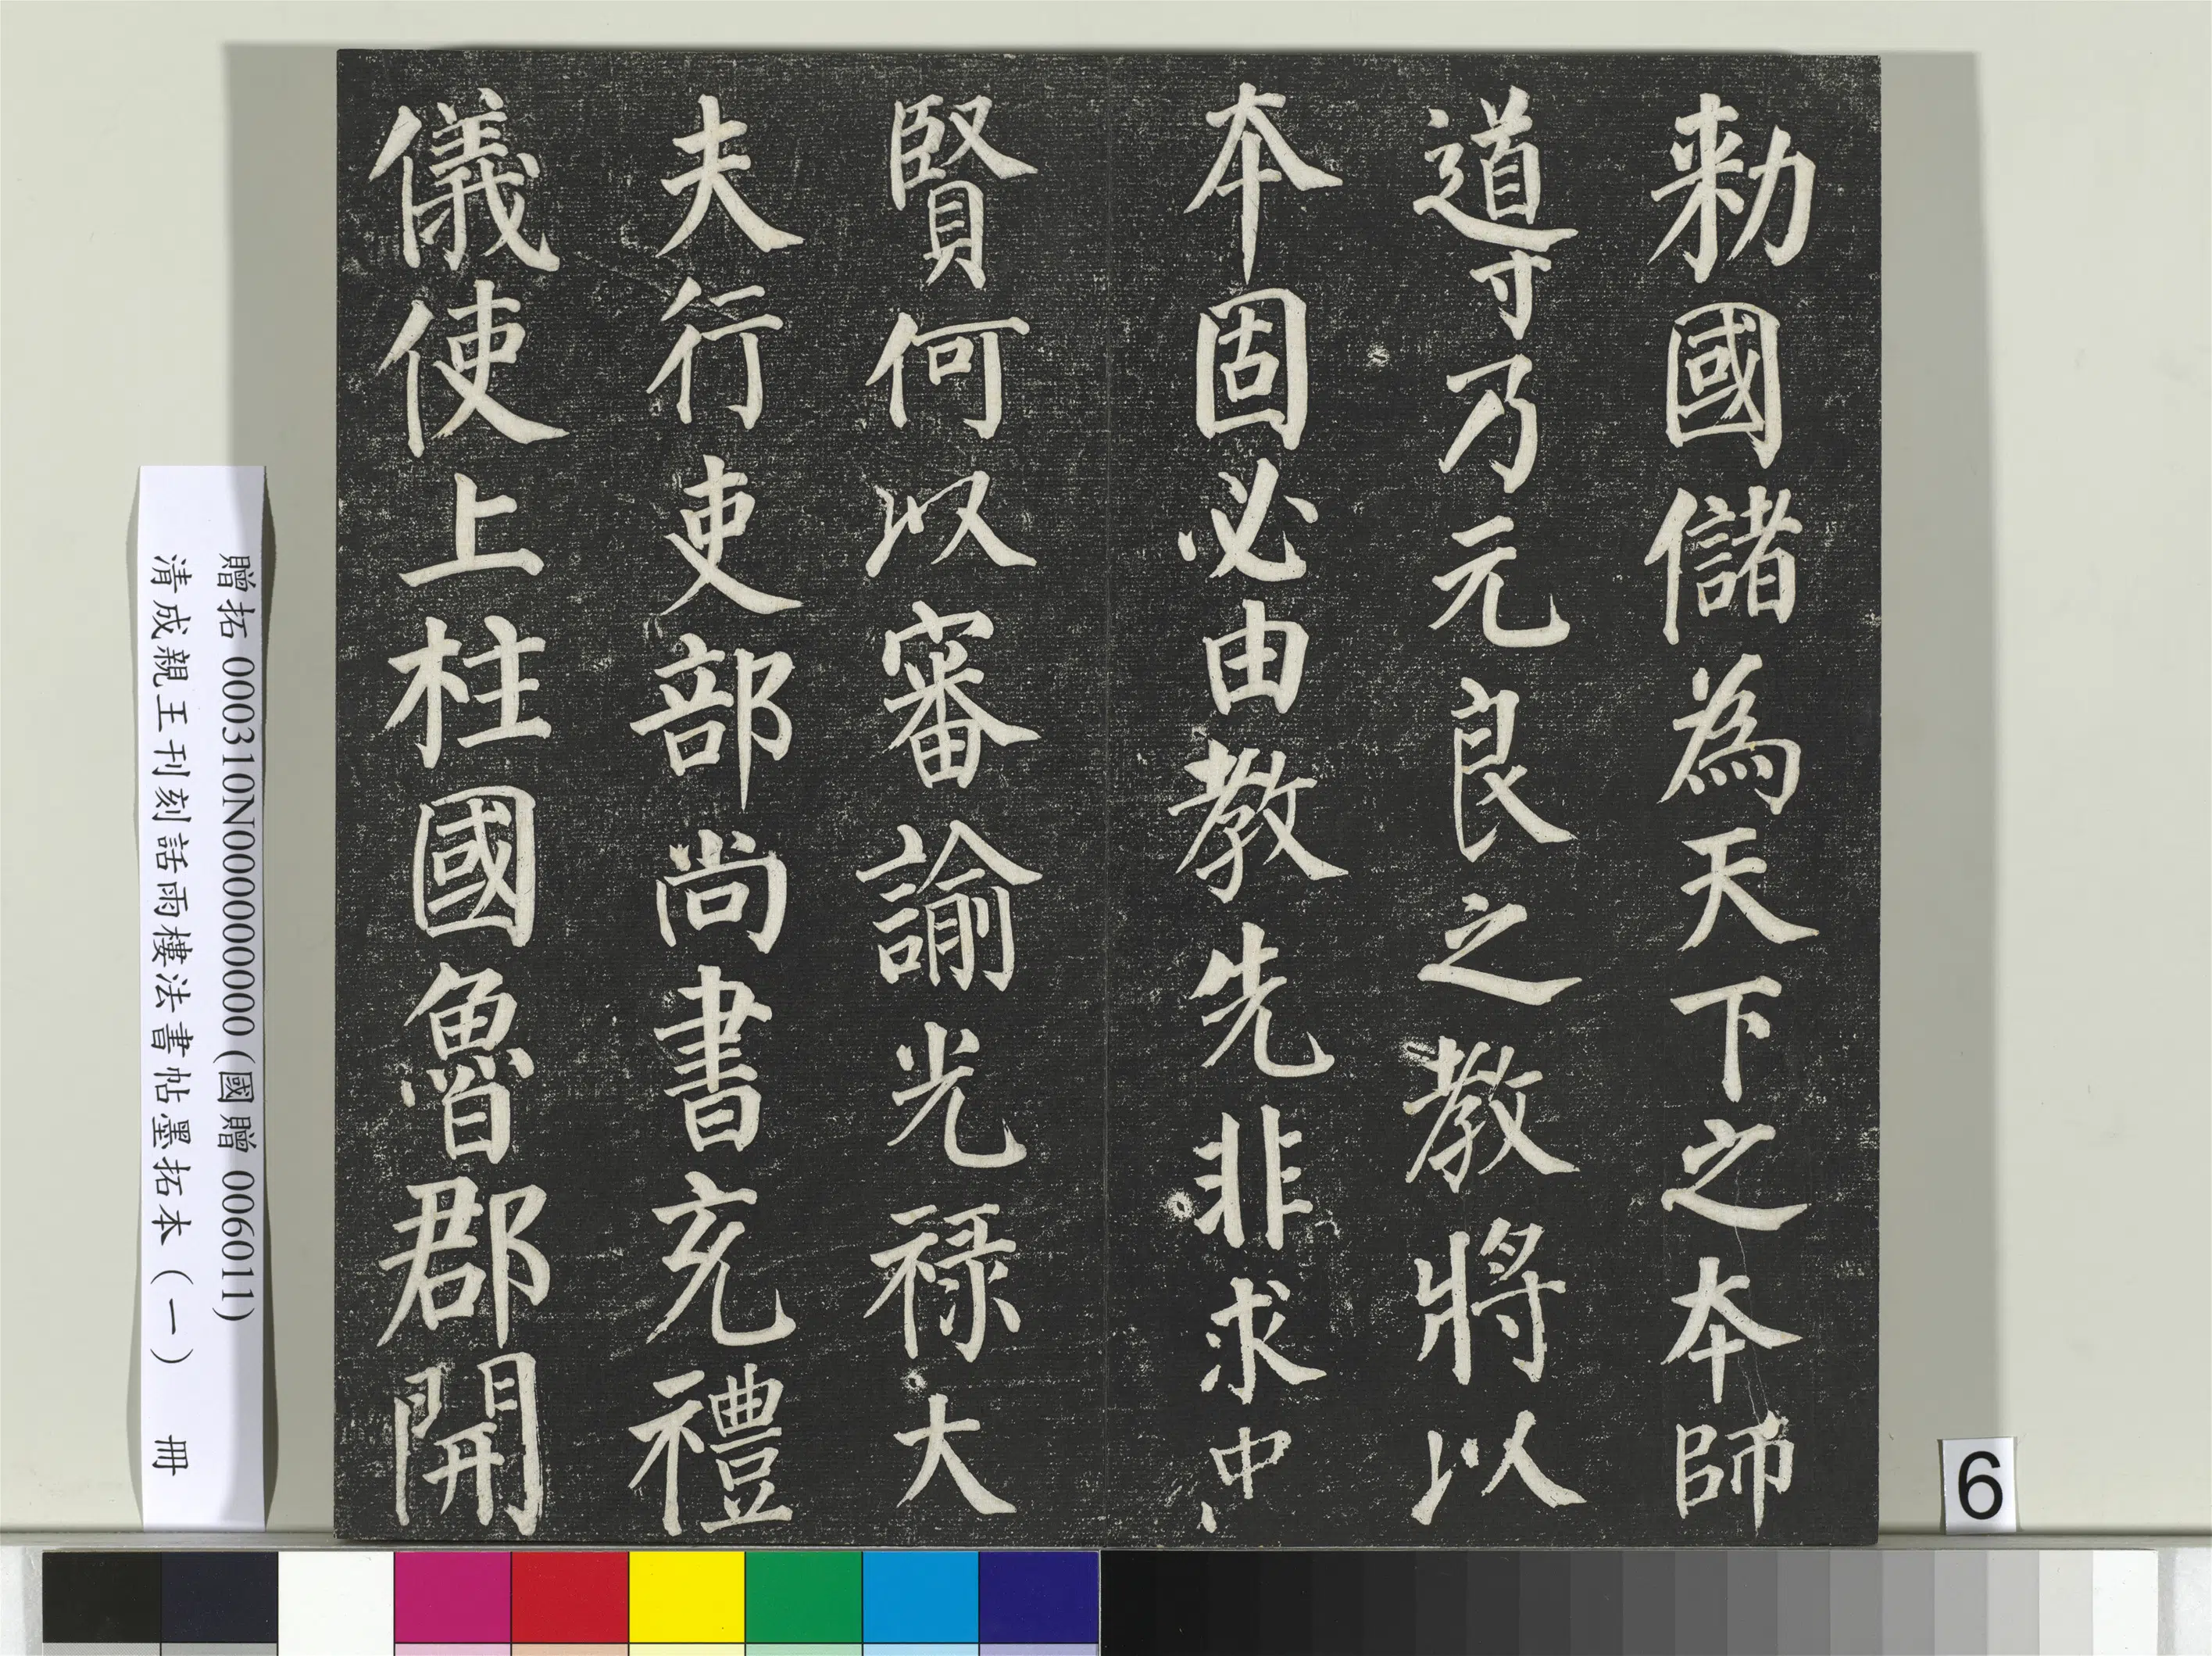 勑國儲為天下之本師
導乃元良之教將以
本固必由教先非求中
賢何以審諭光祿大
夫行吏部尚書充禮
儀使上柱國魯郡開
贈拓 000310N000000000 (國贈 006011)
清成親王刊刻詒晉樓法書帖墨拓本（一） 冊
6